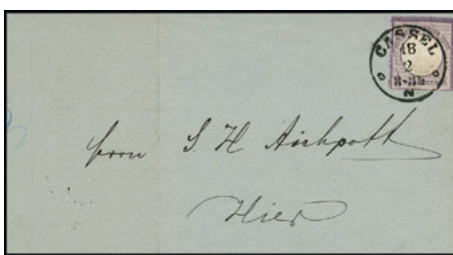 CASSEL
18
2
N
Herrn S. H. Aschpott
Hier